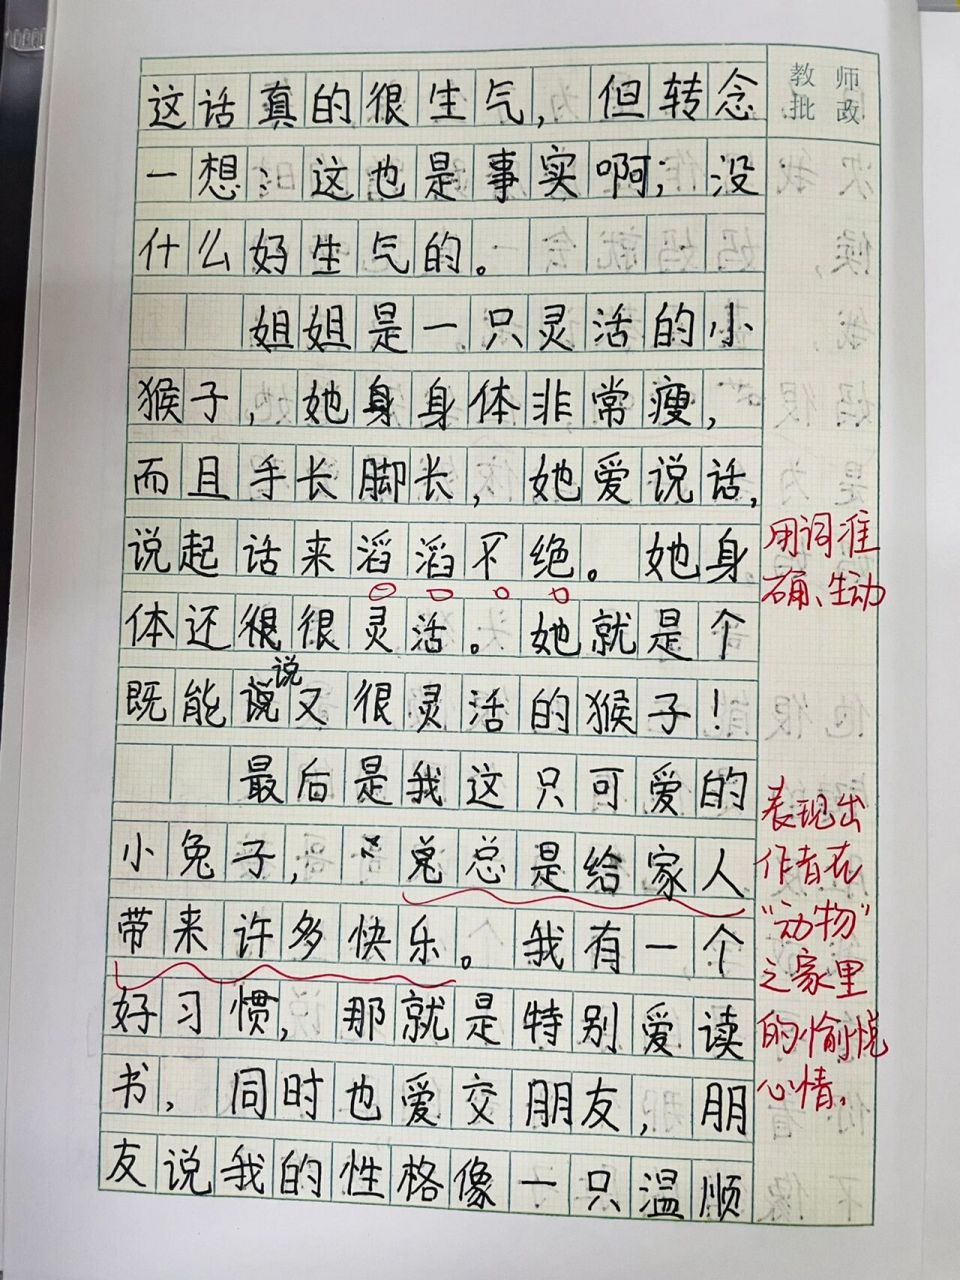 教师
批改
这话真的很生气，但转念
一想：这也是事实啊；没
什么好生气的。
姐姐是一只灵活的小
猴子，她身身体非常瘦，
而且手长脚长，她爱说话，
说起话来滔滔不绝。她身
用词准
确、生动
体还很很灵活。她就是个
说
既能说又很灵活的猴子！
最后是我这只可爱的
小兔子，总是给家人
带来许多快乐。我有一个
表现出
作者在
“动物”
之家里
的愉悦
心情。
好习惯，那就是特别爱读
书，同时也爱交朋友，朋
友说我的性格像一只温顺